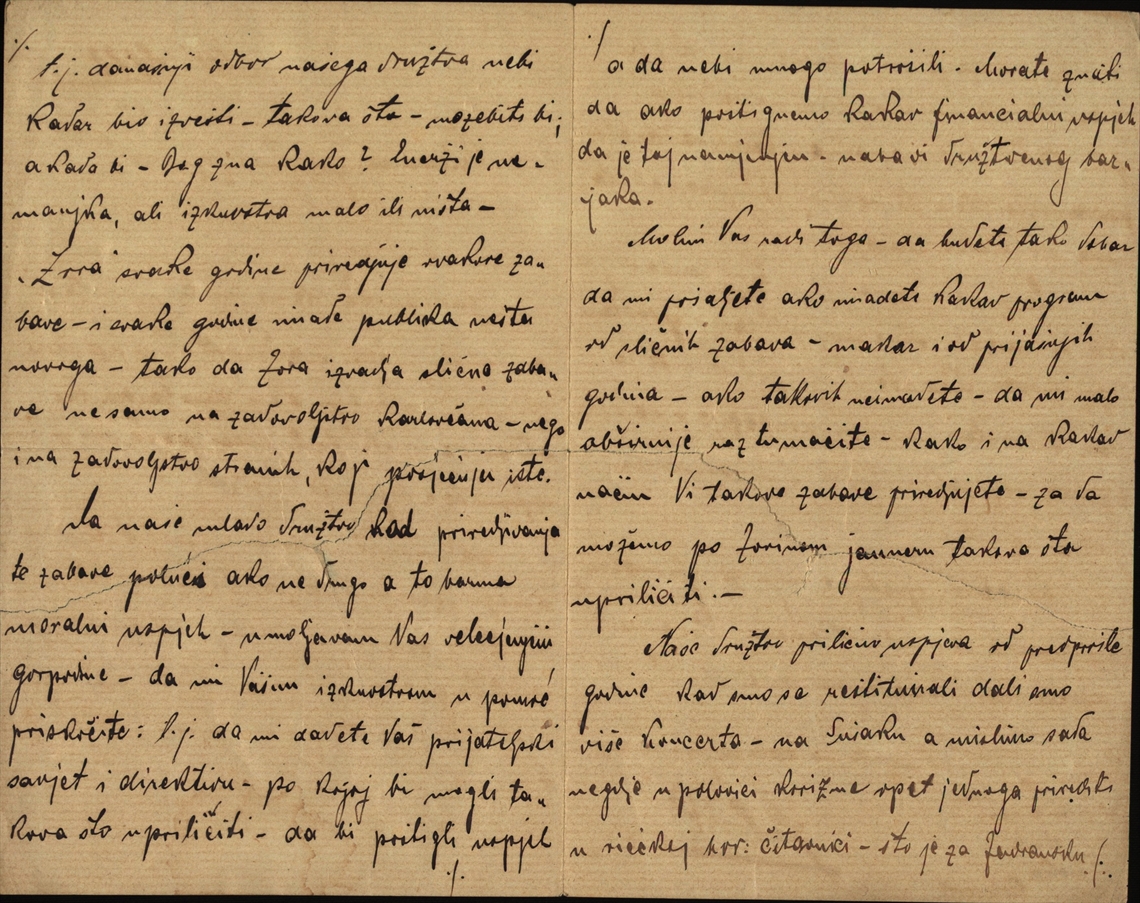 ./.
t.j. današnji odbor našega družtva nebi
kadar bio izvesti - takova šta - mozebiti bi,
a kada bi - Bog zna kako? Energije ne -
manjka, ali izkustva malo ili ništa -
„Zora" svake godine priredjuje ovakove za„
bave - i svake godine imade publika nešta
novoga - tako da Zora izvadja slične zaba„
ve ne samo na zadovoljstvo Karlovčana - nego
i na zadovoljstvo stranih, koji posjećuju iste.
Da naše mlado družtvo kod priredjivanja
te zabave poluči ako ne drugo a to barma
moralni uspjeh - umoljavam Vas velecjenjeni
gospodine - da mi Vašim izkustvom u pomoć
priskočite: t.j. da mi dadete Vaš prijateljski
savjet i direktivu - po kojoj bi mogli ta„
kova što upriličiti - da bi postigli uspjeh
./.
./.
a da nebi mnogo potrošili. Morate znati
da ako postignemo kakav financialni uspjeh
da je taj namjenjen - nabavi družtvenog bar„
jaka.
Molim Vas radi toga - da budete tako dobar
da mi pošaljete ako imadete kakav program
od sličnih zabava - makar i od prijašnjih
godina - ako takovih neimadete - da mi malo
obširnije raztumačite - kako i na kakav
način Vi takove zabave priredjujete - za da
možemo po Zorinom jamneru takova šta
upriličiti. -
Naše družtvo prilično uspjeva od predprošle
godine kad smo se restituirali dali smo
više koncerta - na Sušaku a mislimo sada
negdje u polovici korizme opet jednoga prirediti
u riečkoj hor: čitaonici - što je za Jadransku ./.